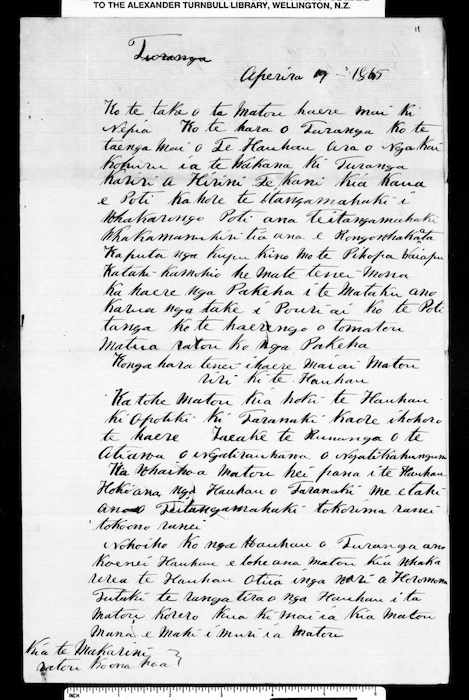 TO THE ALEXANDER TURNBULL LIBRARY, WELLINGTON, N.Z.
11
Turanga
Aperira 1865
Ko te take o ta Matou haere mai ki
Nepia Ko te hara o Turanga ko te
taenga Mai o Te Hauhau Ara o Nga
ia te Wahana ki Turanga
Kariri a Hirini Te Kani kia Kaua
e Poti Kahore te i
Whakarongo Poti ana
Whakamanuhiri tia ana e Rongowhakaata
Kaputa nga kupu kino Mo te Pihopa Waiapu
Kataki Kamohio he mate tenei Mona
ka haere nga Pakeha i te Mataku ano
Karua nga take i Pouri ai ko te Poti
tanga ko te haerengo o tomatou
Matua ratou ko nga Pakeha
Konga hara tenei ihaere mai ai Matou
riri ki te Hauhau
Ka tohe Matou kia hoki te Hauhau
ki Opotiki ki Taranaki Kaore
te haere te Runanga o te
Atiawa o Ngatiraukawa o Ngatikahungunu
Ka whaihoa Matou hei pana i te Hauhau
Hoki ana nga Hauhau o Taranaki Me etahi
ano o tokorima ranei
tokoono ranei
Nohoiho ko nga Hauhau o Turanga ano
Koenei Hauhau e tohe ana Matou kia whaka
rerea te Hauhau Otira inga a Horomona
Tutaki te ranga tira o nga Hauhau i ta
Matou Korero Kua ki mai ia kia Matou
Mana e Mahi i Muri ia Matou
Kia te Makarini
ratou
INCH